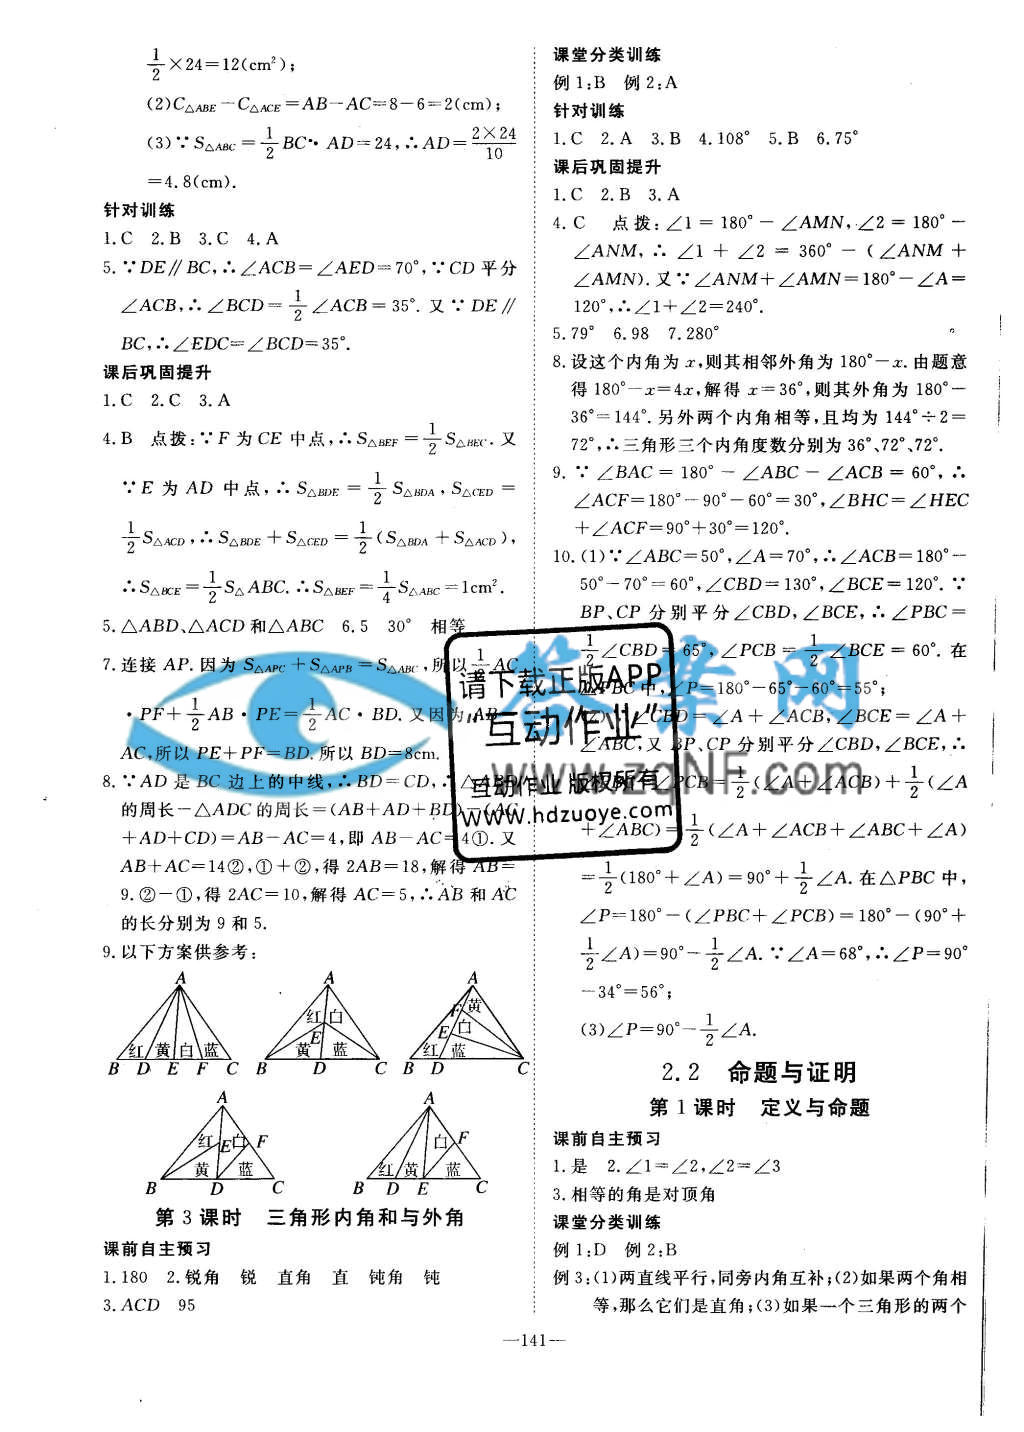 1/2×24=12(cm²);
(2)C△ABE−C△ACE=AB−AC=8−6=2(cm);
(3)∵S△ABC=1/2BC·AD=24,∴AD=2×24/10
=4.8(cm).
针对训练
1.C 2.B 3.C 4.A
5.∵DE∥BC,∴∠ACB=∠AED=70°,∵CD平分
∠ACB,∴∠BCD=1/2∠ACB=35°.又∵DE∥
BC,∴∠EDC=∠BCD=35°.
课后巩固提升
1.C 2.C 3.A
4.B 点拨:∵F为CE中点,∴S△BEF=1/2S△BEC.又
∵E为AD中点,∴S△BDE=1/2S△BDA,S△CED=
1/2S△ACD,∴S△BDE+S△CED=1/2(S△BDA+S△ACD),
∴S△BCE=1/2S△ABC.∴S△BEF=1/4S△ABC=1cm².
5.△ABD、△ACD和△ABC 6.5 30° 相等
7.连接AP.因为S△APC+S△APB=S△ABC,所以1/2AC
·PF+1/2AB·PE=1/2AC·BD.又因为AB=
AC,所以PE+PF=BD.所以BD=8cm.
8.∵AD是BC边上的中线,∴BD=CD,∴△ABD
的周长−△ADC的周长=(AB+AD+BD)−(AC
+AD+CD)=AB−AC=4,即AB−AC=4①.又
AB+AC=14②,①+②,得2AB=18,解得AB=
9.②−①,得2AC=10,解得AC=5,∴AB和AC
的长分别为9和5.
9.以下方案供参考:
A A A
红 黄 白 蓝 红 白 E 黄 蓝 黄 F 白 E 红 蓝
B D E F C B D C B D C
A A
红 E 白 F 黄 蓝 白 F 红 黄 蓝
B D C B D E C
第3课时 三角形内角和与外角
课前自主预习
1.180 2.锐角 锐 直角 直 钝角 钝
3.ACD 95
课堂分类训练
例1:B 例2:A
针对训练
1.C 2.A 3.B 4.108° 5.B 6.75°
课后巩固提升
1.C 2.B 3.A
4.C 点拨:∠1=180°−∠AMN,∠2=180°−
∠ANM,∴∠1+∠2=360°−(∠ANM+
∠AMN).又∵∠ANM+∠AMN=180°−∠A=
120°,∴∠1+∠2=240°.
5.79° 6.98 7.280°
8.设这个内角为x,则其相邻外角为180°−x.由题意
得180°−x=4x,解得x=36°,则其外角为180°−
36°=144°.另外两个内角相等,且均为144°÷2=
72°,∴三角形三个内角度数分别为36°、72°、72°.
9.∵∠BAC=180°−∠ABC−∠ACB=60°,∴
∠ACF=180°−90°−60°=30°,∠BHC=∠HEC
+∠ACF=90°+30°=120°.
10.(1)∵∠ABC=50°,∠A=70°,∴∠ACB=180°−
50°−70°=60°,∠CBD=130°,∠BCE=120°.∵
BP、CP分别平分∠CBD,∠BCE,∴∠PBC=
1/2∠CBD=65°,∠PCB=1/2∠BCE=60°.在
△PBC中,∠P=180°−65°−60°=55°;
∠CBD=∠A+∠ACB,∠BCE=∠A+
∠ABC,又BP、CP分别平分∠CBD,∠BCE,∴
∠PCB=1/2(∠A+∠ACB)+1/2(∠A
+∠ABC)=1/2(∠A+∠ACB+∠ABC+∠A)
=1/2(180°+∠A)=90°+1/2∠A.在△PBC中,
∠P=180°−(∠PBC+∠PCB)=180°−(90°+
1/2∠A)=90°−1/2∠A.∵∠A=68°,∴∠P=90°
−34°=56°;
(3)∠P=90°−1/2∠A.
2.2 命题与证明
第1课时 定义与命题
课前自主预习
1.是 2.∠1=∠2,∠2=∠3
3.相等的角是对顶角
课堂分类训练
例1:D 例2:B
例3:(1)两直线平行,同旁内角互补;(2)如果两个角相
等,那么它们是直角;(3)如果一个三角形的两个
—141—
答案网
www.zqNF.com
请下载正版APP
“互动作业”
互动作业 版权所有
www.hdzuoye.com